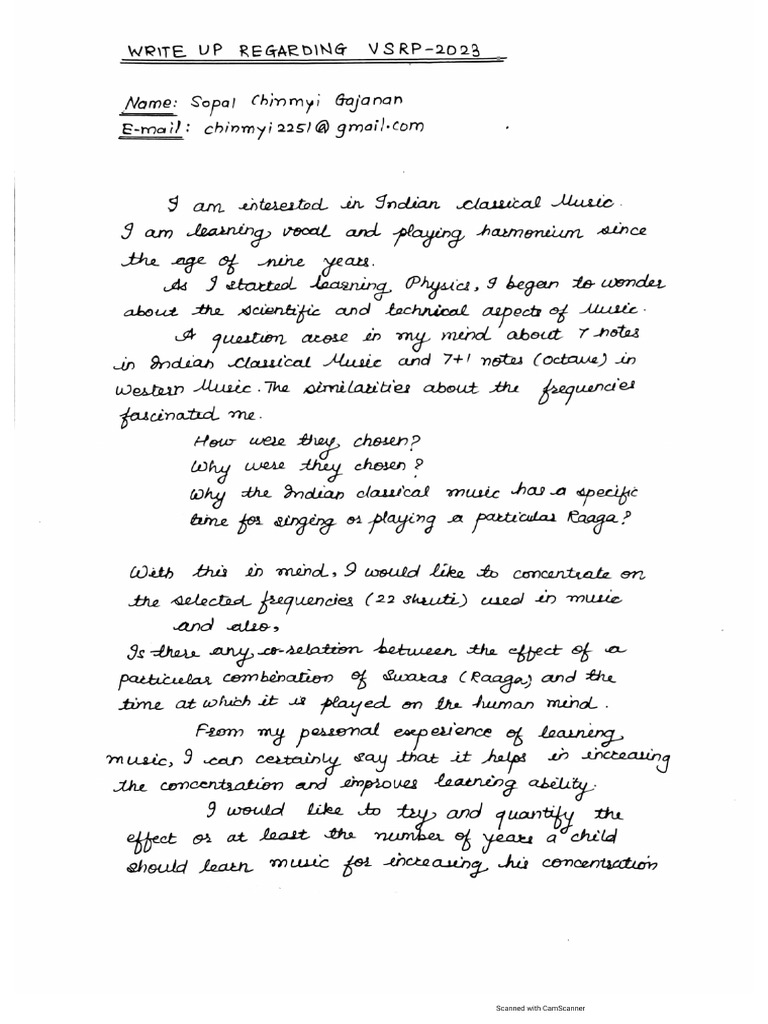 WRITE UP REGARDING VSRP-2023
Name: Sopal Chinmyi Gajanan
E-mail: chinmyi2251@gmail.com
I am interested in Indian classical Music.
I am learning vocal and playing harmonium since
the age of nine years.
As I started learning Physics, I began to wonder
about the scientific and technical aspects of Music.
A question arose in my mind about 7 notes
in Indian Classical Music and 7+1 notes (octave) in
Western Music. The similarities about the frequencies
fascinated me.
How were they chosen?
Why were they chosen?
Why the Indian classical music has a specific
time for singing or playing a particular Raaga?
With this in mind, I would like to concentrate on
the selected frequencies (22 shruti) used in music
and also,
Is there any co-relation between the effect of a
particular combination of Swaras (Raaga) and the
time at which it is played on the human mind.
From my personal experience of learning
music, I can certainly say that it helps in increasing
the concentration and improves learning ability.
I would like to try and quantify the
effect or at least the number of years a child
should learn music for increasing his concentration
Scanned with CamScanner